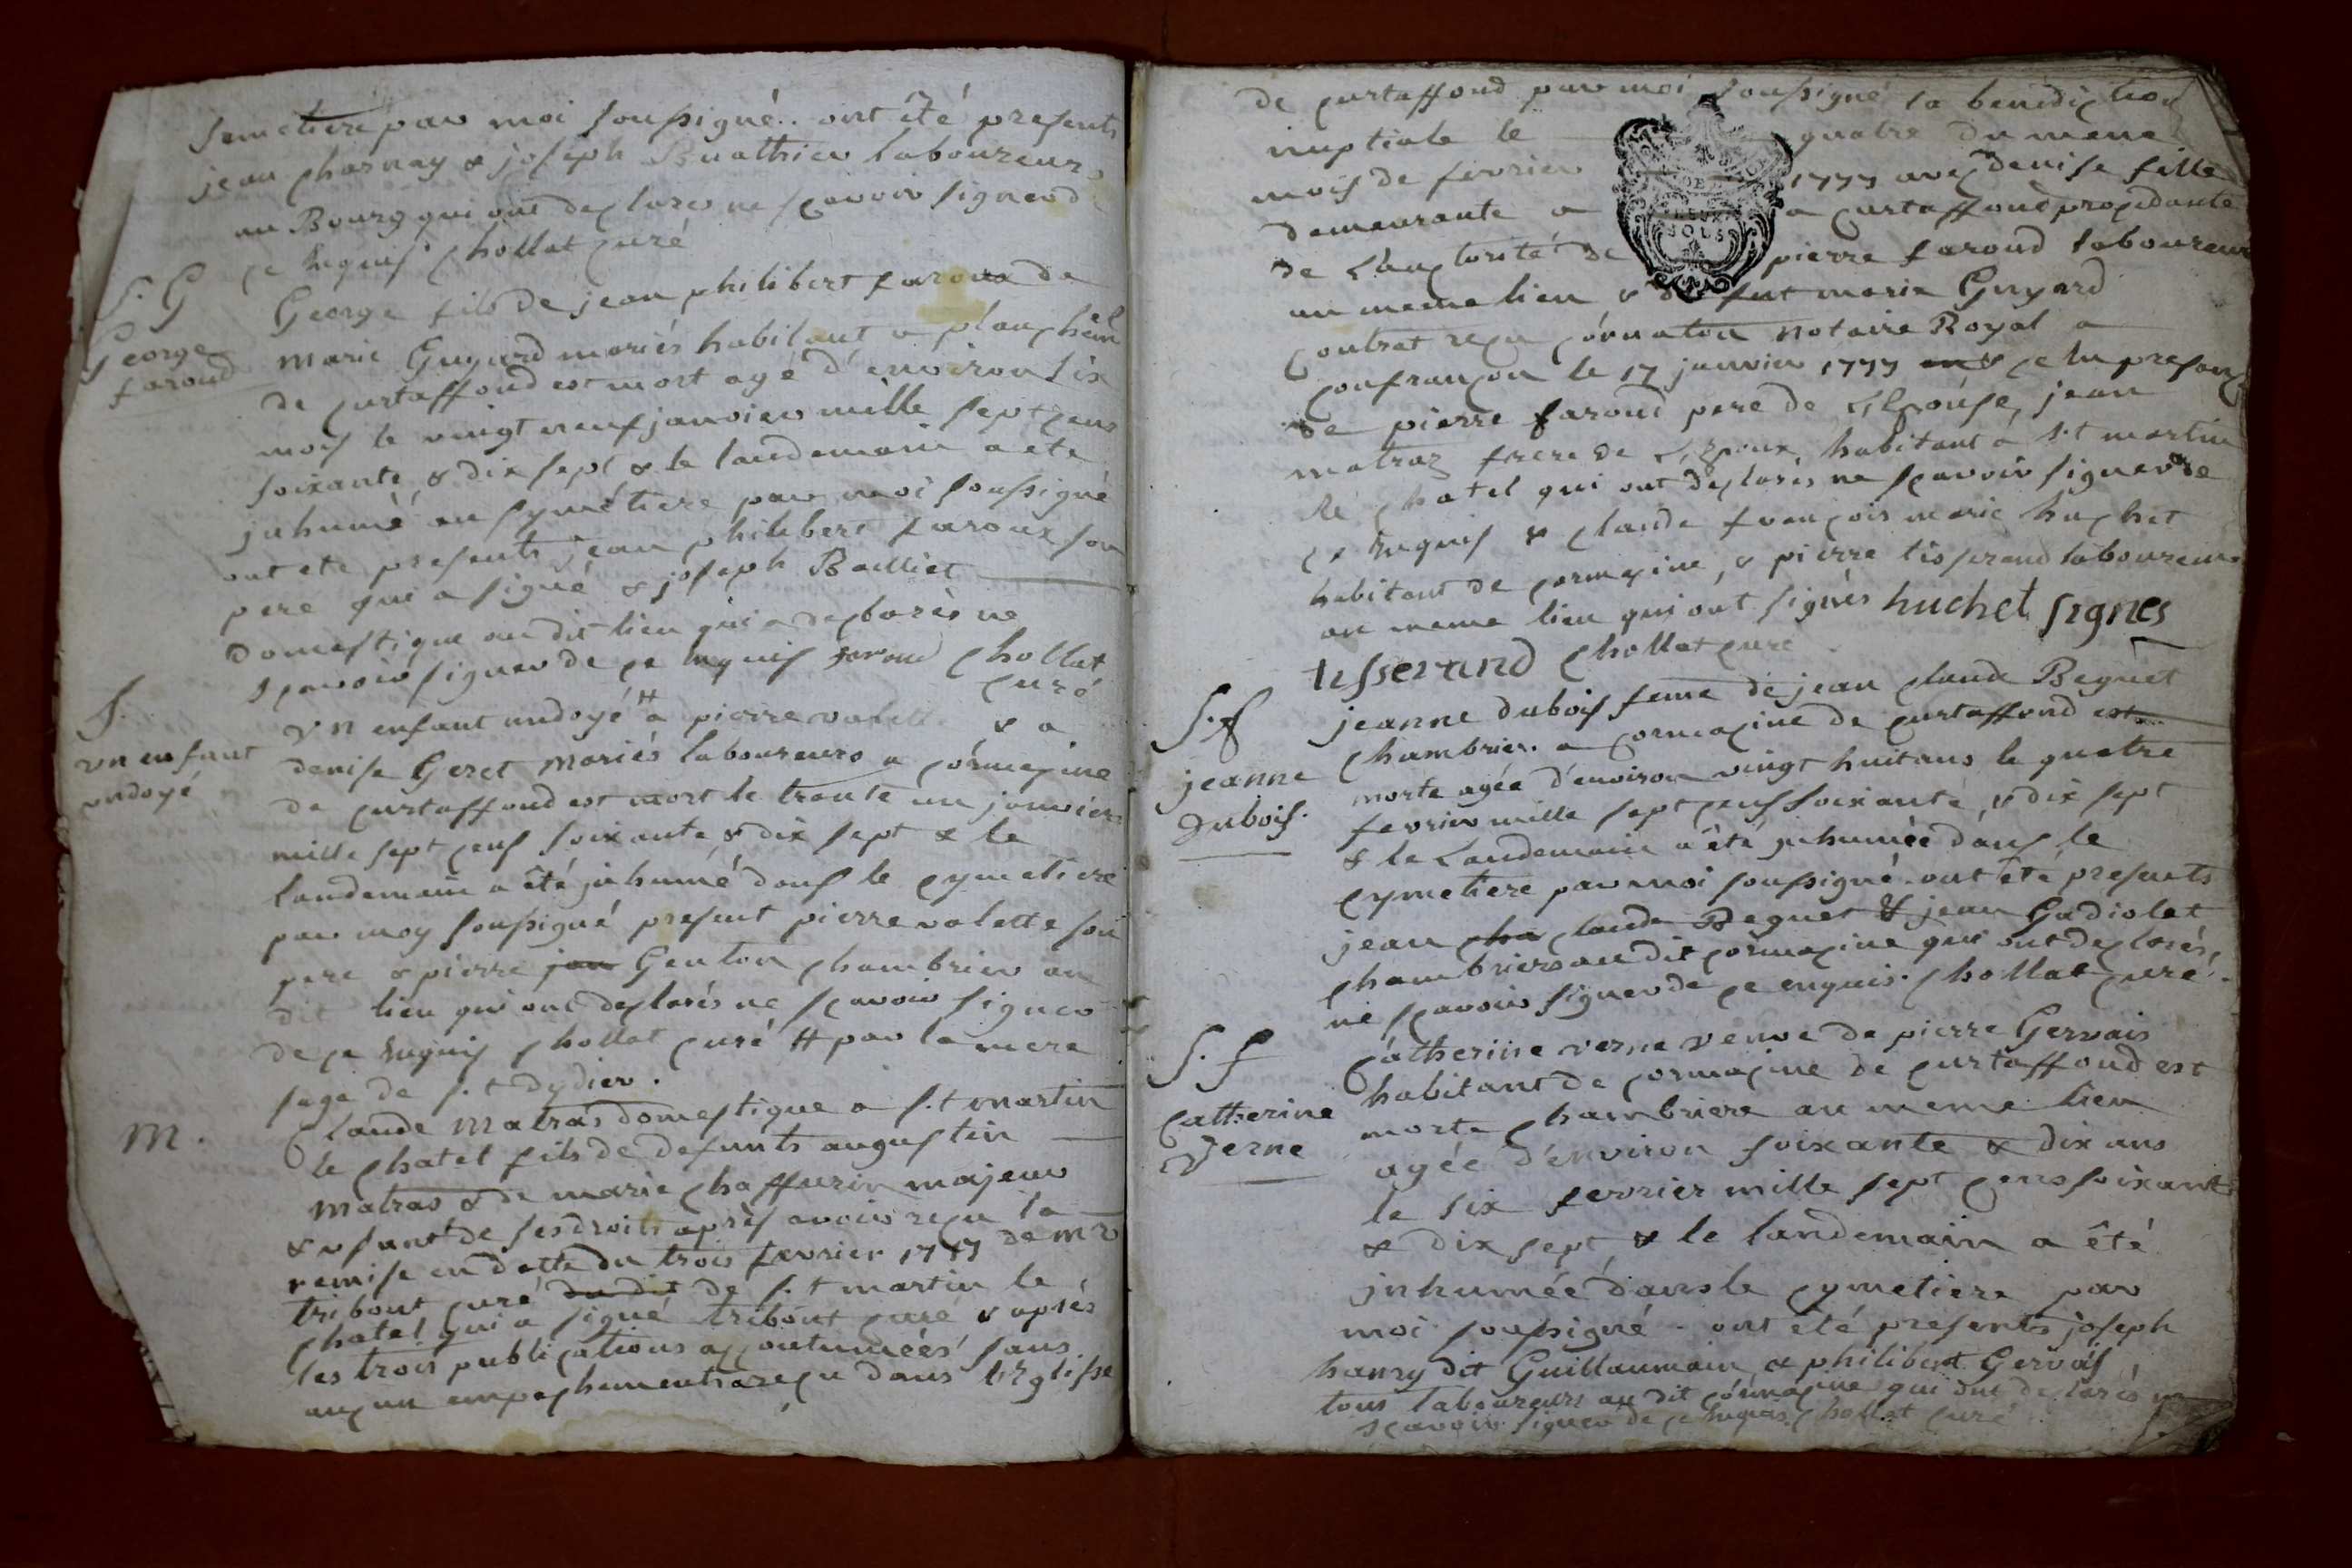 semetiere par moi soussigné. ont êté presents
jean charnay & joseph Buathier laboureurs
au Bourg qui ont declarés ne scavoir signer de
ce enquis chollat curé
S. G
George
faroud
George fils de jean philibert faroud de
marie Guyard mariés habitant a
de curtaffond est mort agé d'environ six
mois le vingt neuf janvier mille sept cens
soixante & dix sept & le landemain a ete
inhumé au symétiere par moi soussigné
ont ete presents jean philibert faroux son
pere qui a signé & joseph Bailliet
domestique au dit lieu qui a declarés ne
scavoir signer de ce enquis faroud chollat
curé
S.
vn enfant
ondoyé
vn enfant ondoyé # a pierre valette & a
denise Geret mariés laboureurs a cormacine
de curtaffond est mort le trente un janvier
mille sept cens soixante & dix sept & le
landemain a êté inhumé dans le cymetiere
par moy soussigné present pierre valette son
pere & pierre jan Genton chambrier au
dit lieu qui ont declarés ne scavoir signer
de ce enquis chollat curé # par la mere
sage de s.t dydier.
M.
Claude Matras domestique a s.t martin
le chatel fils de defunts augustin
matras & de marie chaffurin majeur
& usant de ses droits après avoir reçu la
remise en dette du trois fevrier 1777 de mr
tribout curé du dit de s.t martin le
chatel qui a signé tribout curé & après
les trois publications accoutumées sans
aucun empechement a reçu dans l'Eglisse
de curtaffond par moi soussigné la benediction
nuptiale le quatre du meme
mois de fevrier 1777 avec denise fille
demeurante a a curtaffond procedante
de l'auctorité de pierre faroud laboureur
au meme lieu & de fut marie Guyard
contrat reçu notaire Royal a
confrançon le 17 janvier 1777 en & ce en presence
de pierre faroud pere de L'Epouse, jean
matraz frere de L'Epoux habitant a s.t martin
le chatel qui ont declarés ne scavoir signer de
ce enquis & claude françois marie huchet
habitant de cormacine, & pierre tisserand laboureur
au meme lieu qui ont signés huchet signes
tisserand chollat curé
S. f
jeanne
dubois.
jeanne dubois feme de jean claude Beguet
chambrier. a cormacine de curtaffond est
morte agée d'environ vingt huit ans le quatre
fevrier mille sept cens soixante & dix sept
& le Landemain a êté inhumée dans le
cymetiere par moi soussigné. ont êté presents
jean cha claude Beguet & jean Gadiolet
chambriers au dit cormacine qui ont declarés
ne scavoir signer de ce enquis. chollat curé.
S. f
Catherine
Verne
Catherine verne veuve de pierre Gervais
habitant de cormacine de curtaffond est
morte chambriere au meme lieu
agée d'environ soixante & dix ans
le six fevrier mille sept cens soixante
& dix sept & le landemain a êté
inhumée dans le cymetiere par
moi soussigné. ont été presents joseph
hanry dit Guillaumain & philibert Gervais
tous laboureurs au dit cormacine qui ont declarés ne
scavoir signer de ce enquis chollat curé
DEUX
SOLS